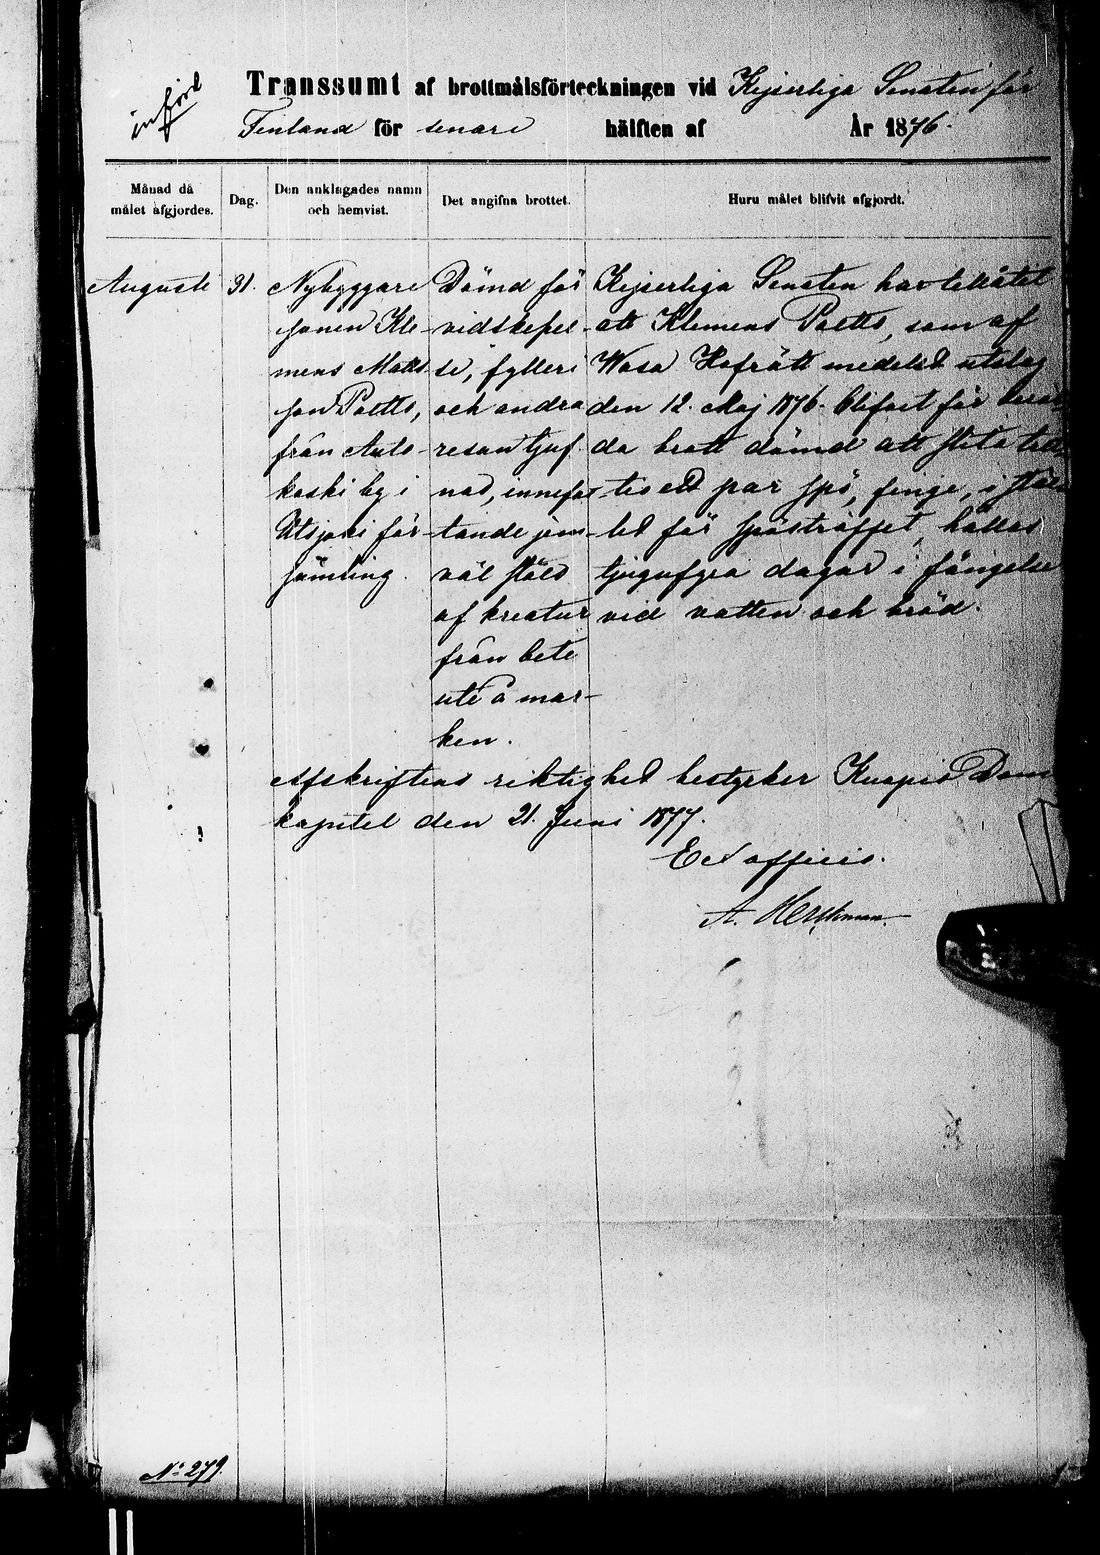 införd
Transsumt af brottmålsförteckningen vid Kejserliga Senaten för
Finland för senare hälften af År 1876.
Månad då målet afgjordes.
Dag.
Den anklagades namn och hemvist.
Det angifna brottet.
Huru målet blifvit afgjordt.
Augusti
31.
Nybyggare
sonen Kle-
mens Matts
son Paltto,
från Auts-
koski by i
Utsjoki för-
samling.
Dömd för
vidskepel-
se, fylleri
och andra
resan tjuf-
nad, innefat
tande jem-
väl stöld
af kreatur
från bete
ute å mar-
ken.
Kejserliga Senaten har tillåtit
att Klemens Paltto, som af
Wasa Hofrätt medelst utslag
den 12. Maj 1876. blifvit för
da brott dömd att slita
par spö, finge, i stäl-
let för spöstraffet, hållas
tjugufyra dagar i fängelse
vid vatten och bröd.
Afskriftens riktighet bestyrker Kuopio Dom
kapitel den 21. Juni 1877.
Ex officio.
A.
No 279.